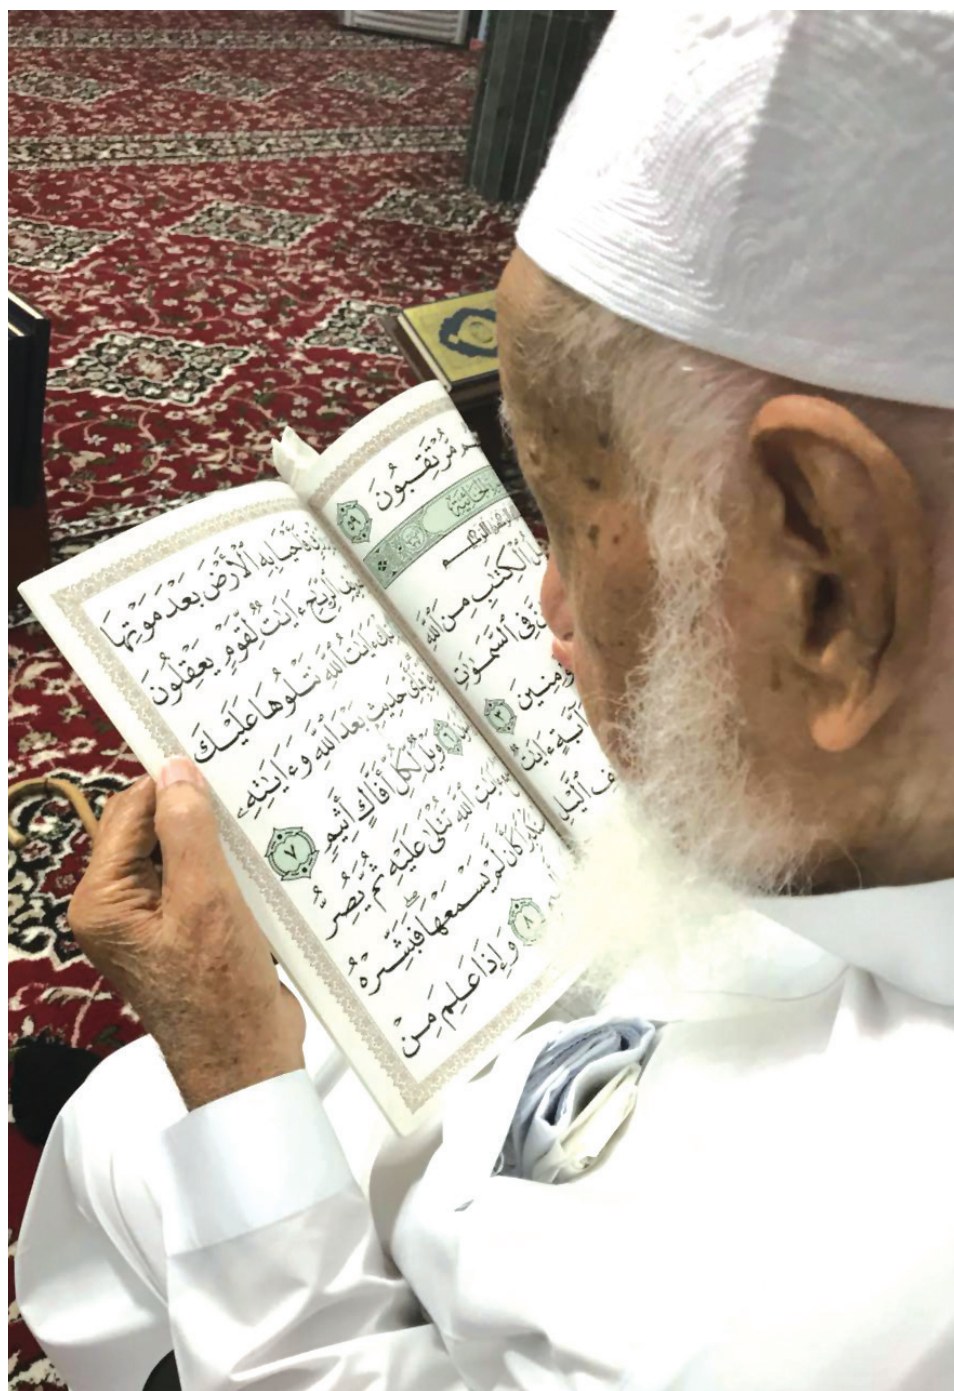 مُّرْتَقِبُونَ ٥٩
الجَاثِيَة
ٱلرَّحِيمِ
ٱلْكِتَٰبِ مِنَ ٱللَّهِ
فِى ٱلسَّمَٰوَٰتِ
٣
ءَايَٰتٌ
ٱلَّيْلِ
بِهِ ٱلْأَرْضَ بَعْدَ مَوْتِهَا
ٱلرِّيَٰحِ ءَايَٰتٌ لِّقَوْمٍ يَعْقِلُونَ
ءَايَٰتُ ٱللَّهِ نَتْلُوهَا عَلَيْكَ
حَدِيثٍۭ بَعْدَ ٱللَّهِ وَءَايَٰتِهِۦ
٦ وَيْلٌ لِّكُلِّ أَفَّاكٍ أَثِيمٍ ٧
ءَايَٰتِ ٱللَّهِ تُتْلَىٰ عَلَيْهِ ثُمَّ يُصِرُّ
كَأَن لَّمْ يَسْمَعْهَا ۖ فَبَشِّرْهُ
٨ وَإِذَا عَلِمَ مِنْ